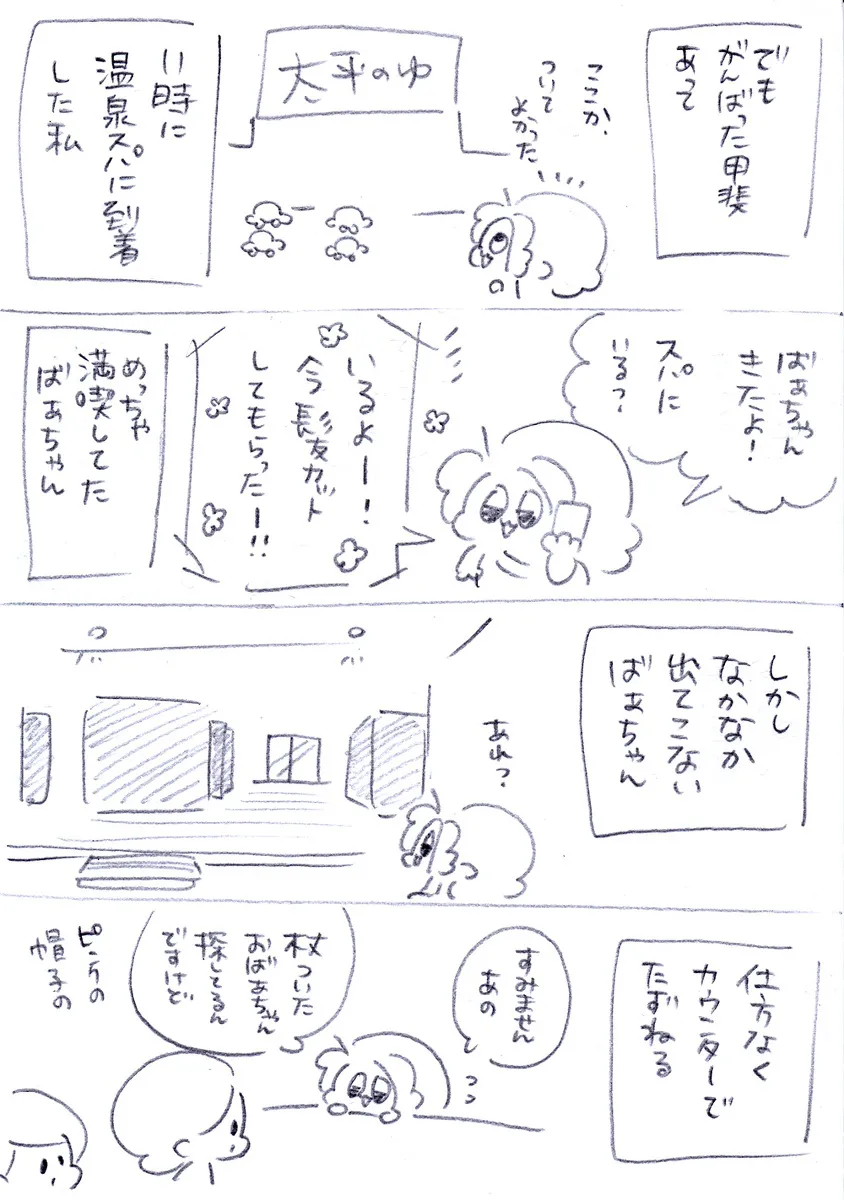 でも
がんばった甲斐
あって
ここか、
ついて
よかった
太平のゆ
11時に
温泉スパに到着
した私
ばぁちゃん
きたよ!
スパに
いる?
いるよー!
今髪カット
してもらったー!!
めっちゃ
満喫してた
ばぁちゃん
しかし
なかなか
出てこない
ばぁちゃん
あれ?
仕方なく
カウンターで
たずねる
すみません
あの
杖ついた
おばあちゃん
探してるん
ですけど
ピンクの
帽子の